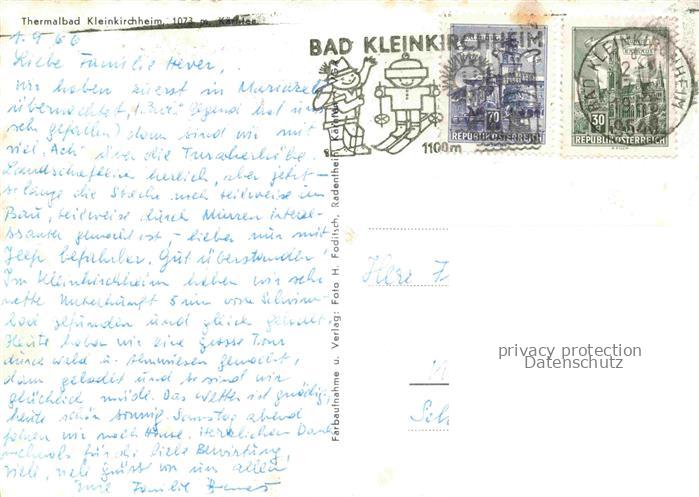 Thermalbad Kleinkirchheim, 1073 m, Kärnten
1.9.66
Liebe Familie
wir haben zuerst in Mariazell
übernachtet, Gegend hat uns
sehr gefallen) dann sind wir mit
viel "Ach" über die Turacherhöhe.
Landschaftlich herrlich, aber jetzt
solange die Strecke noch teilweise im
Bau, teilweise durch Muren interes-
santer gemacht ist, - lieber nur mit
Jeep befahrbar. Gut überstanden!
In Kleinkirchheim haben wir sehr
nette Unterkunft 5 min vom Schwimm-
bad gefunden und gleich gebadet.
Heute haben wir eine grosse Tour
durch Wald u. Almwiesen gemacht,
dann gebadet und so sind wir
glücklich müde. Das Wetter ist gnädig,
heute schön sonnig. Samstag abend
fahren wir nach Hause. Herzlichen Dank
nochmals für die liebe Bewirtung,
viele, viele Grüsse von uns allen
Familie
Farbaufnahme u. Verlag: Foto H. Foditsch, Radenthein, Kärnten
BAD KLEINKIRCHHEIM
1100m
70
REPUBLIK ÖSTERREICH
30
REPUBLIK ÖSTERREICH
BAD KLEINKIRCHHEIM
privacy protection
Datenschutz